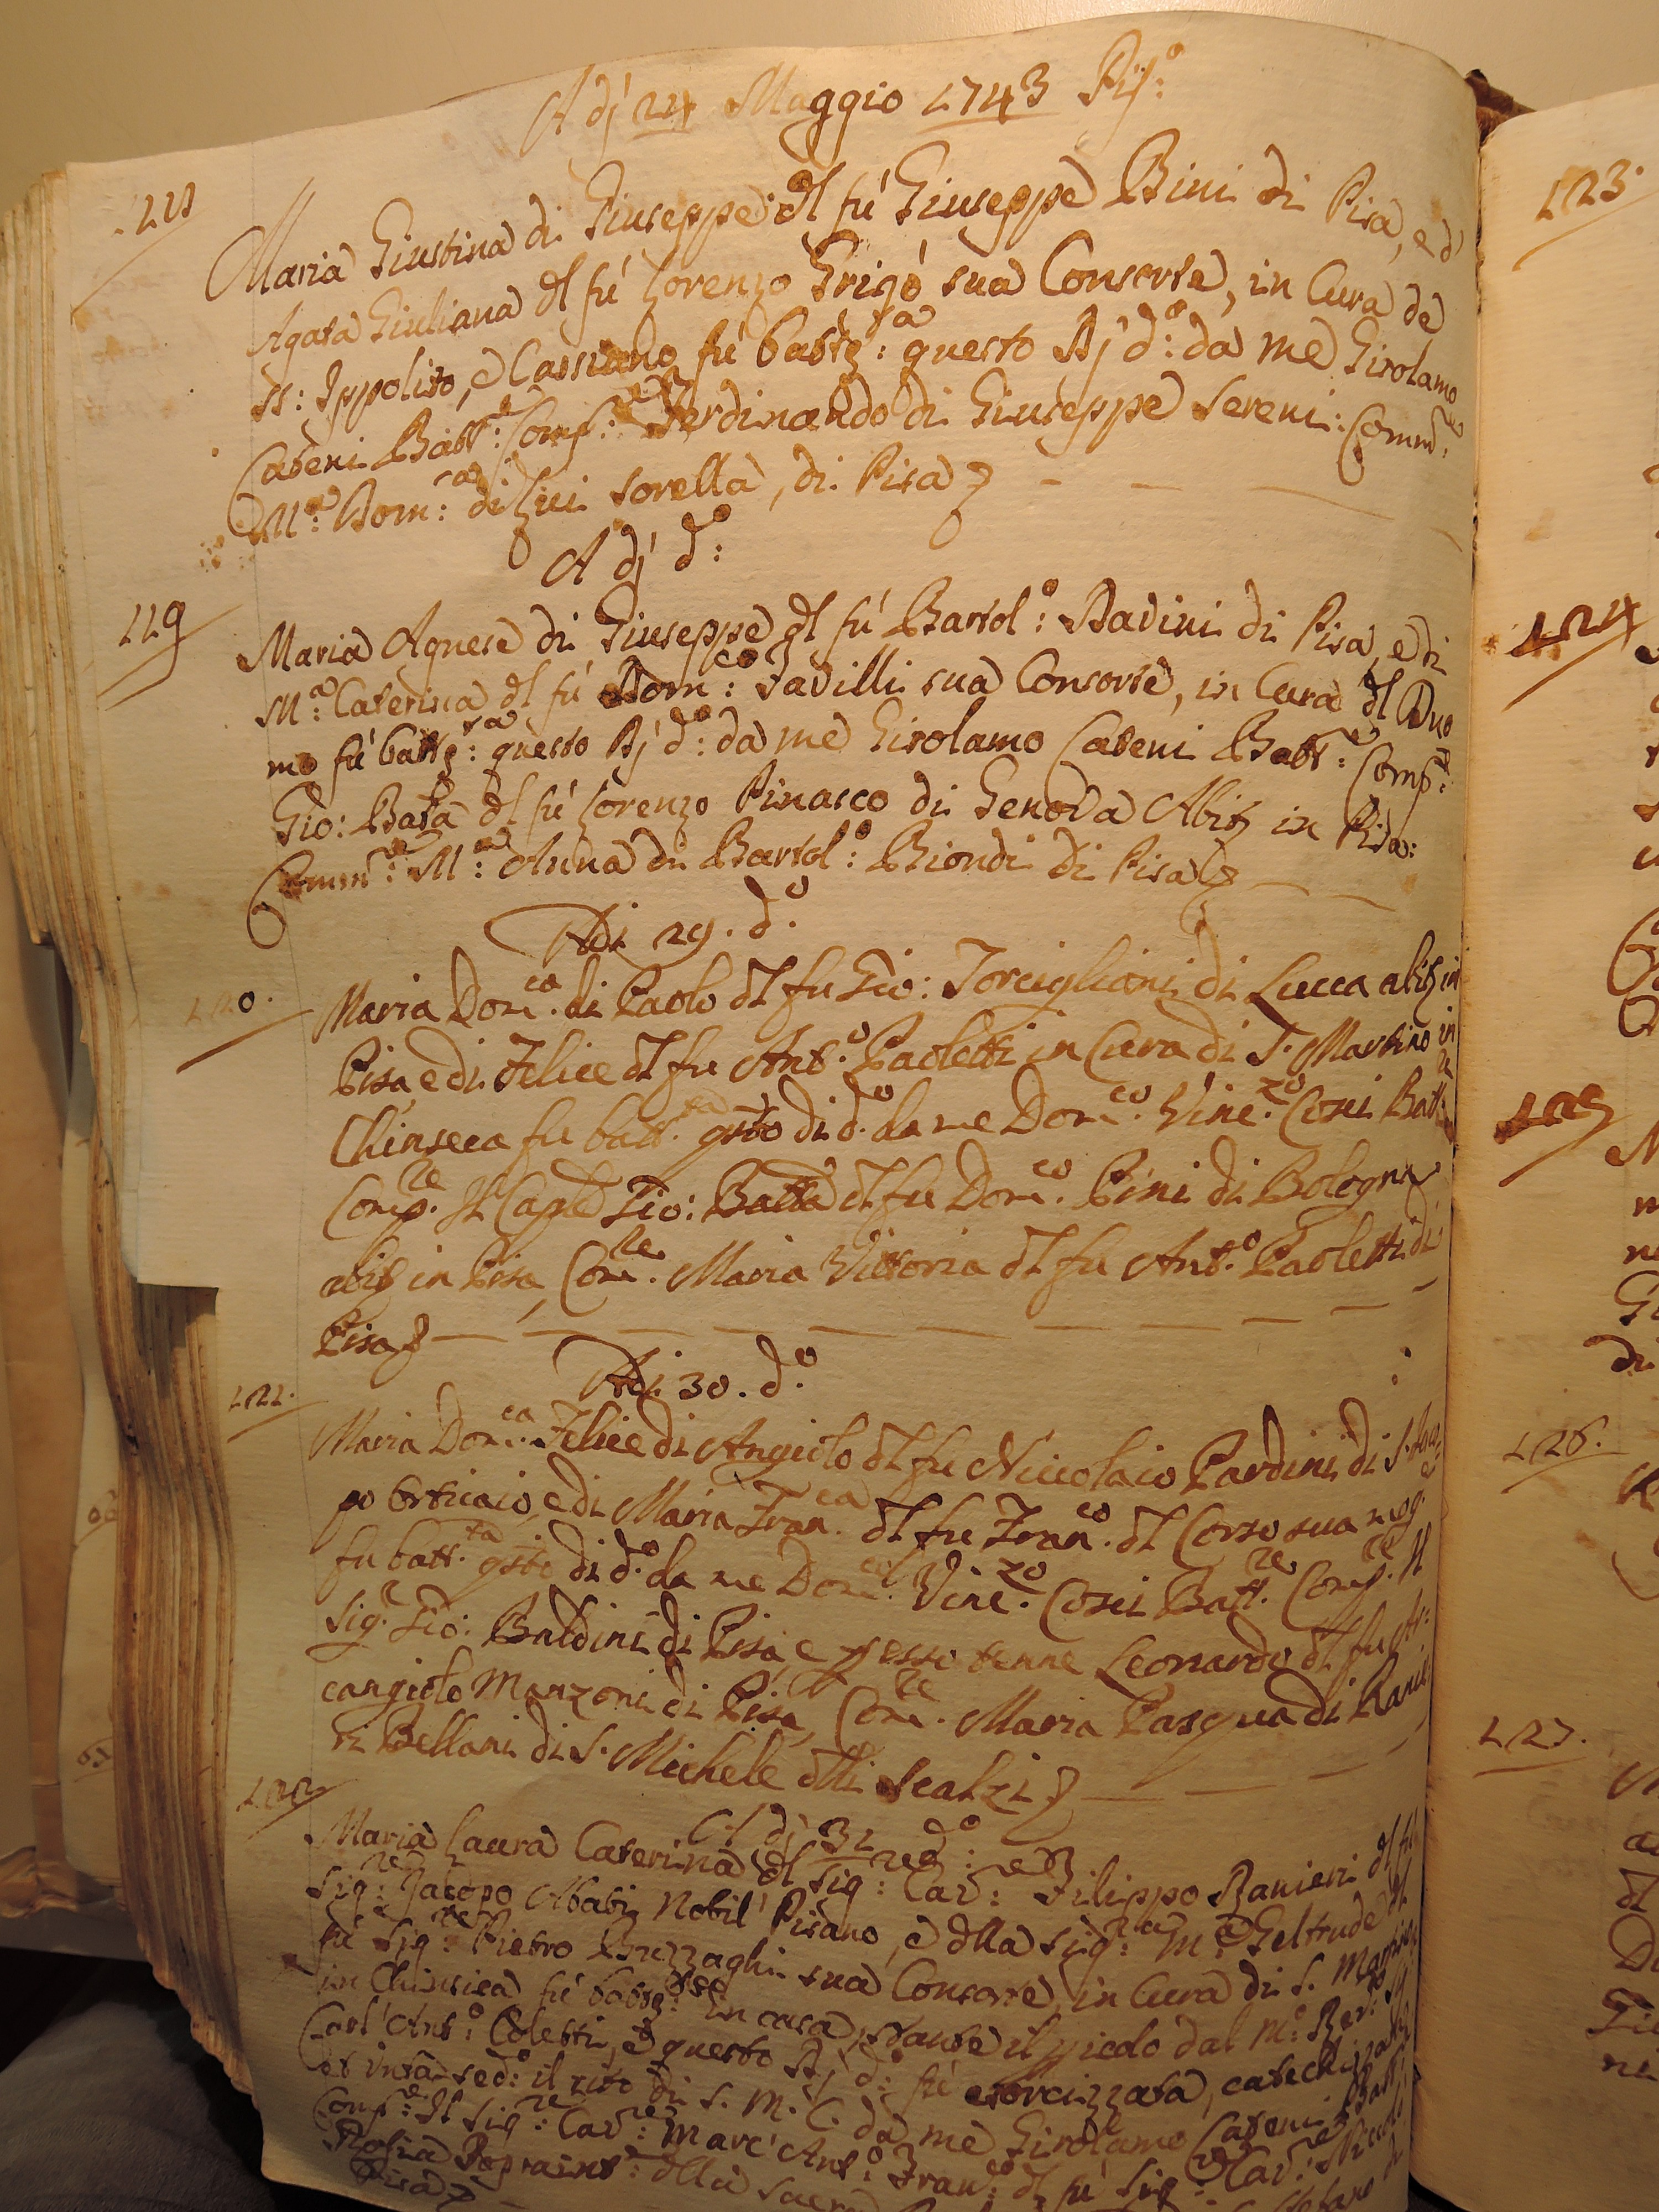 A dj 24 Maggio 1743 Pis:º
118
Maria Giustina di Giuseppe dl fù Giuseppe Bini di Pisa, e d'
Agata Giuliana dl fù Lorenzo Grigò sua Consorte, in Cura de
SS: Ippolito, e Cassiano fù battz:ta questo dj d:º da me Girolamo
Cateni Batt:e Comp:e Ferdinando di Giuseppe Sereni: Comm:e
M:a Dom:ca di Lui sorella, di Pisa
A dj d:º
119
Maria Agnese di Giuseppe dl fù Bartol:º Badini di Pisa, e di
M:a Caterina dl fù Dom:co Savilli sua Consorte, in Cura dl Duo
mo fù battz:ta questo dj d:º da me Girolamo Cateni Batt:e Comp:e
Gio: Batta dl fù Lorenzo Pinasco di Genova Abitz in Pisa:
Comm:e M:a Anna di Bartol:º Biondi di Pisa
Adi 29. d.º
120.
Maria Dom.ca di Paolo dl fu Gio: Torciglioni di Lucca abitz in
Pisa, e di Felice dl fu Ant.º Paoletti in Cura di S. Martino in
Chinseca fu batt.ta qsto di d.º da me Dom.co Vinc.zo Cosci Batt.re
Comp.re Il Capne Gio: Batta dl fu Dom.co Pini di Bologna
abitz in Pisa, Com.re Maria Vittoria dl fu Ant.º Paoletti di
Pisa
Adi 30. d.º
121.
Maria Dom.ca Felice di Angiolo dl fu Niccolaio Pardini di S. Jaco=
po Orticaio, e di Maria Fran.ca dl fu Fran.co dl Corso sua mog.e
fu batt.ta qsto di d.º da me Dom.co Vinc.zo Cosci Batt.re Comp.re Il
Sig.r Gio: Baldini di Pisa, e p esso tenne Leonardo dl fu Ar=
cangiolo Manzoni di Pisa, Com.re Maria Pasqua di Ranie
ri Bellani di S. Michele dlli Scalzi
A di 31 d:º
122
Maria Laura Caterina dl Sig:re Cav:re Filippo Ranieri dl fù
Sig:re Jacopo Abati Nobil' Pisano, e dlla Sig:ra M:a Geltrude dl
fù Sig:re Pietro sua Consorte, in Cura di S. Martino
in Chinsica fù battz:ta in casa, stante il picolo dal M:º Rev:do Sig:
Carl' Ant:º Coletti, e questo dj d:º fù esorcizzata, catechizzata
et unta sed:º il rito di S. M. C. da me Girolamo Cateni Batt:
Comp:e Il Sig:re Cav:re Marc' Ant:º Fran:co dl fù Sig:re Cav:re Niccolò
dlla
Pisa
123.
124
125
126.
127.